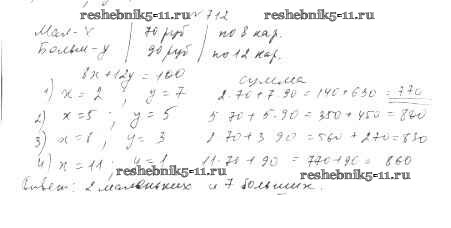 reshebnik5-11.ru № 712 reshebnik5-11.ru
Мал - x | 70 руб | по 8 кар.
Больш - y | 90 руб | по 12 кар.
8x + 12y = 100 сумма
1) x = 2 ; y = 7 2·70 + 7·90 = 140 + 630 = 770
2) x = 5 ; y = 5 5·70 + 5·90 = 350 + 450 = 800
3) x = 8 , y = 3 8·70 + 3·90 = 560 + 270 = 830
4) x = 11 ; y = 1 11·70 + 90 = 770 + 90 = 860
reshebnik5-11.ru reshebnik5-11.ru
Ответ: 2 маленьких и 7 больших.